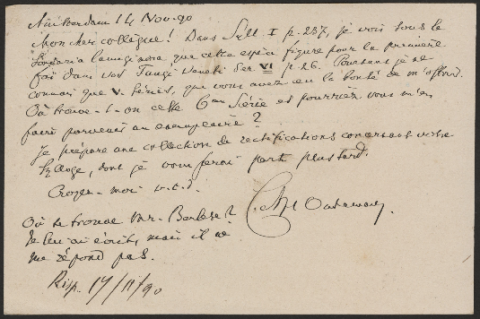 Amsterdam 14 Nov. 90
Mon cher collègue! Dans Syll. I p. 237, je vois sous le
lanuginosa que cette espèce figure pour la première
fois dans vos Fungi Veneti Ser VI p. 26. Pourtant je ne
connais que V. Séries, que vous avez eu la bonté de m'offrir.
Où trouve-t-on cette 6me Série et pourriez vous m'en
faire parvenir un exemplaire?
Je prépare une collection de rectifications concernant votre
Sylloge, dont je vous ferai part plus tard.
Croyez-moi v. t. d.
C. A. J. A. Oudemans.
Où se trouve Mr. Berlese?
Je lui ai écrit, mais il ne
me répond pas.
Risp. 17/11/90